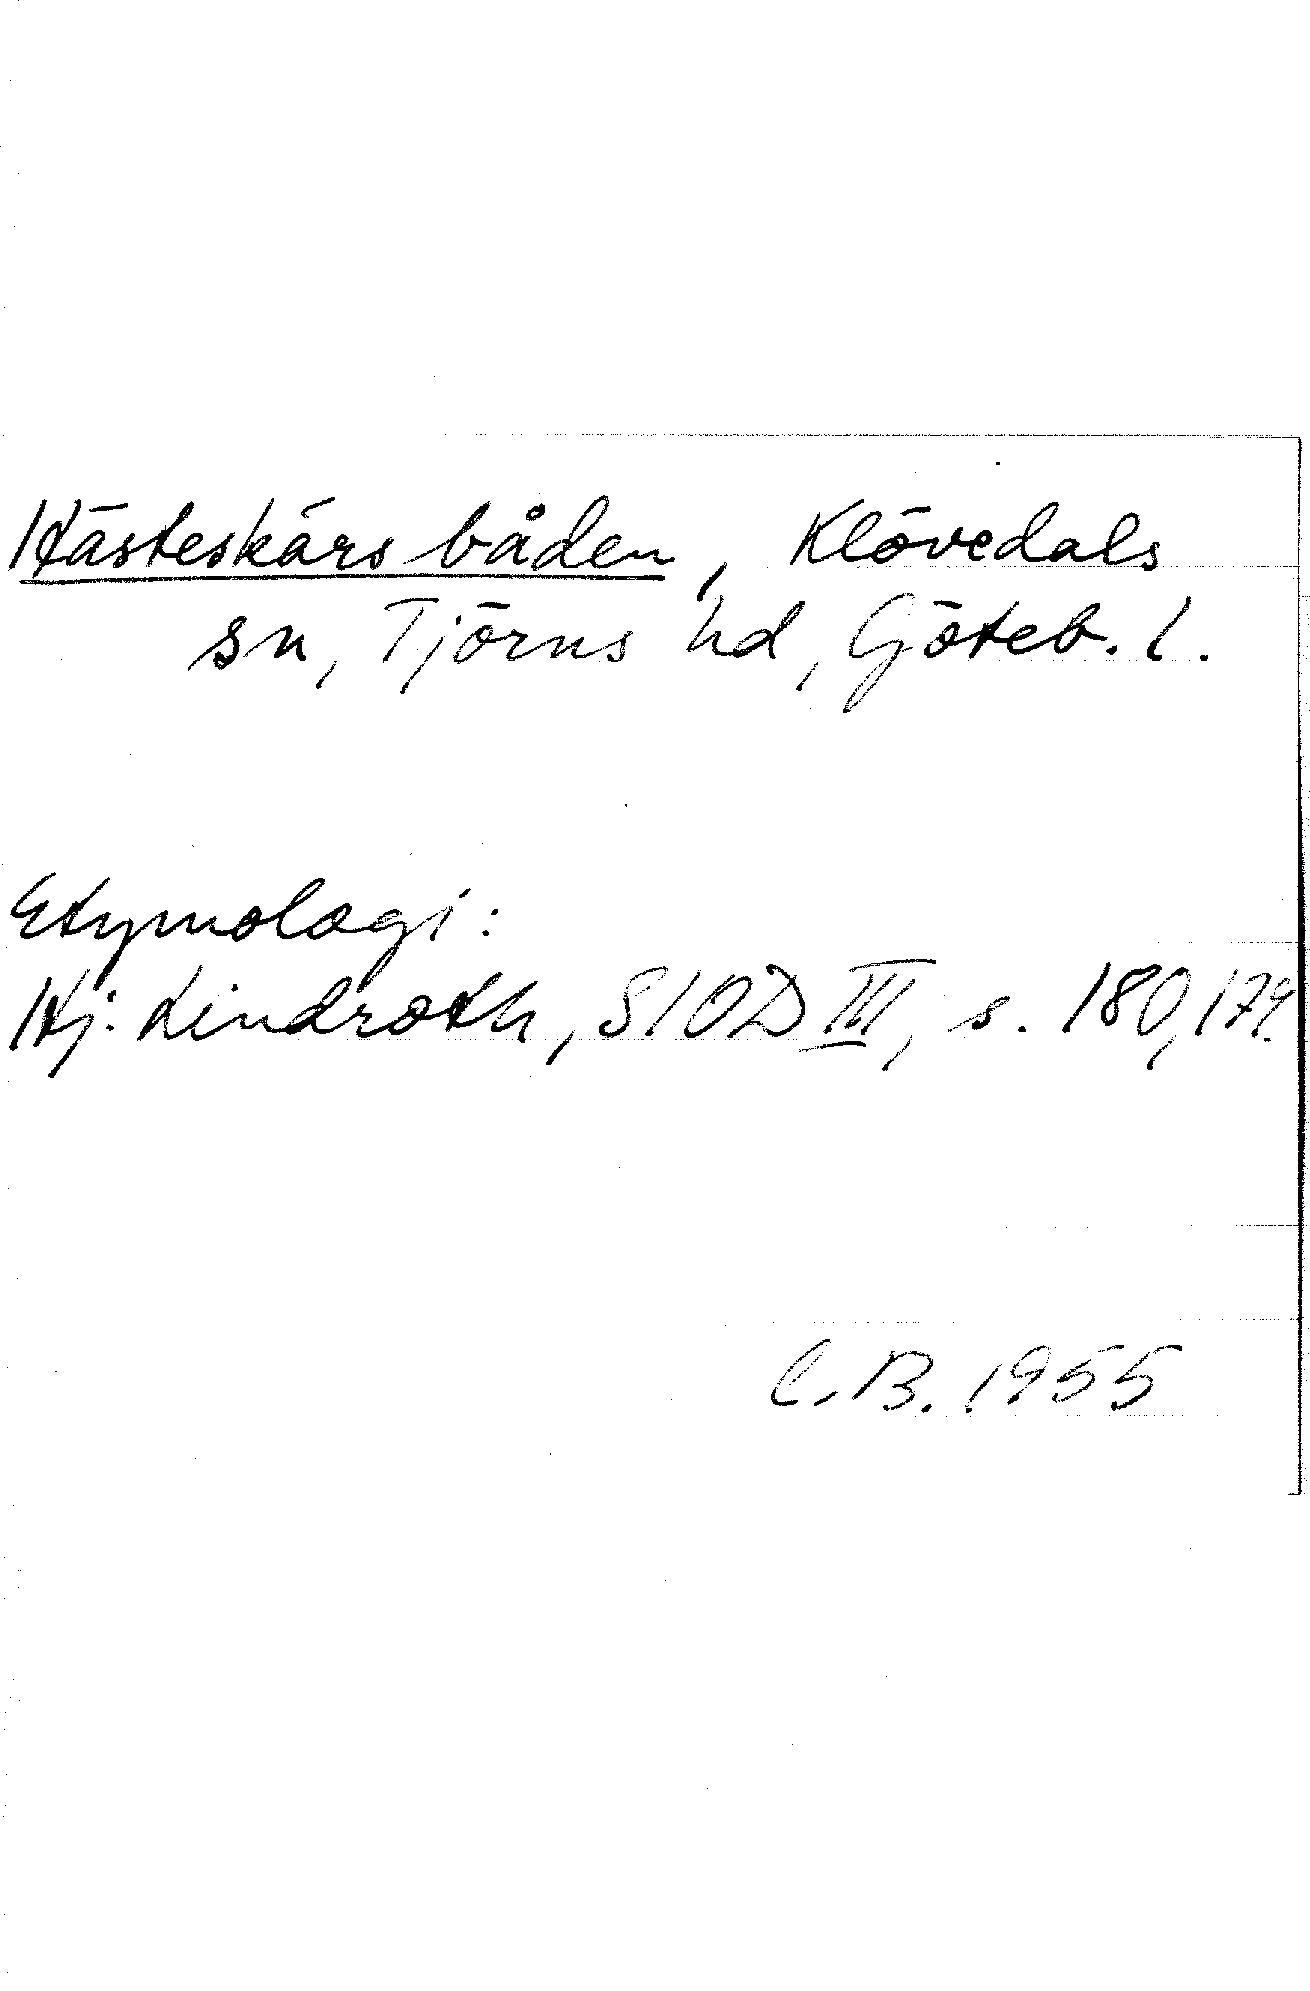 Hästeskärs båden, Klövedals
sn, Tjörns hd, Göteb. l.
Etymologi:
Hj. Lindroth, SIOD III, s. 180, 174.
C. B. 1955